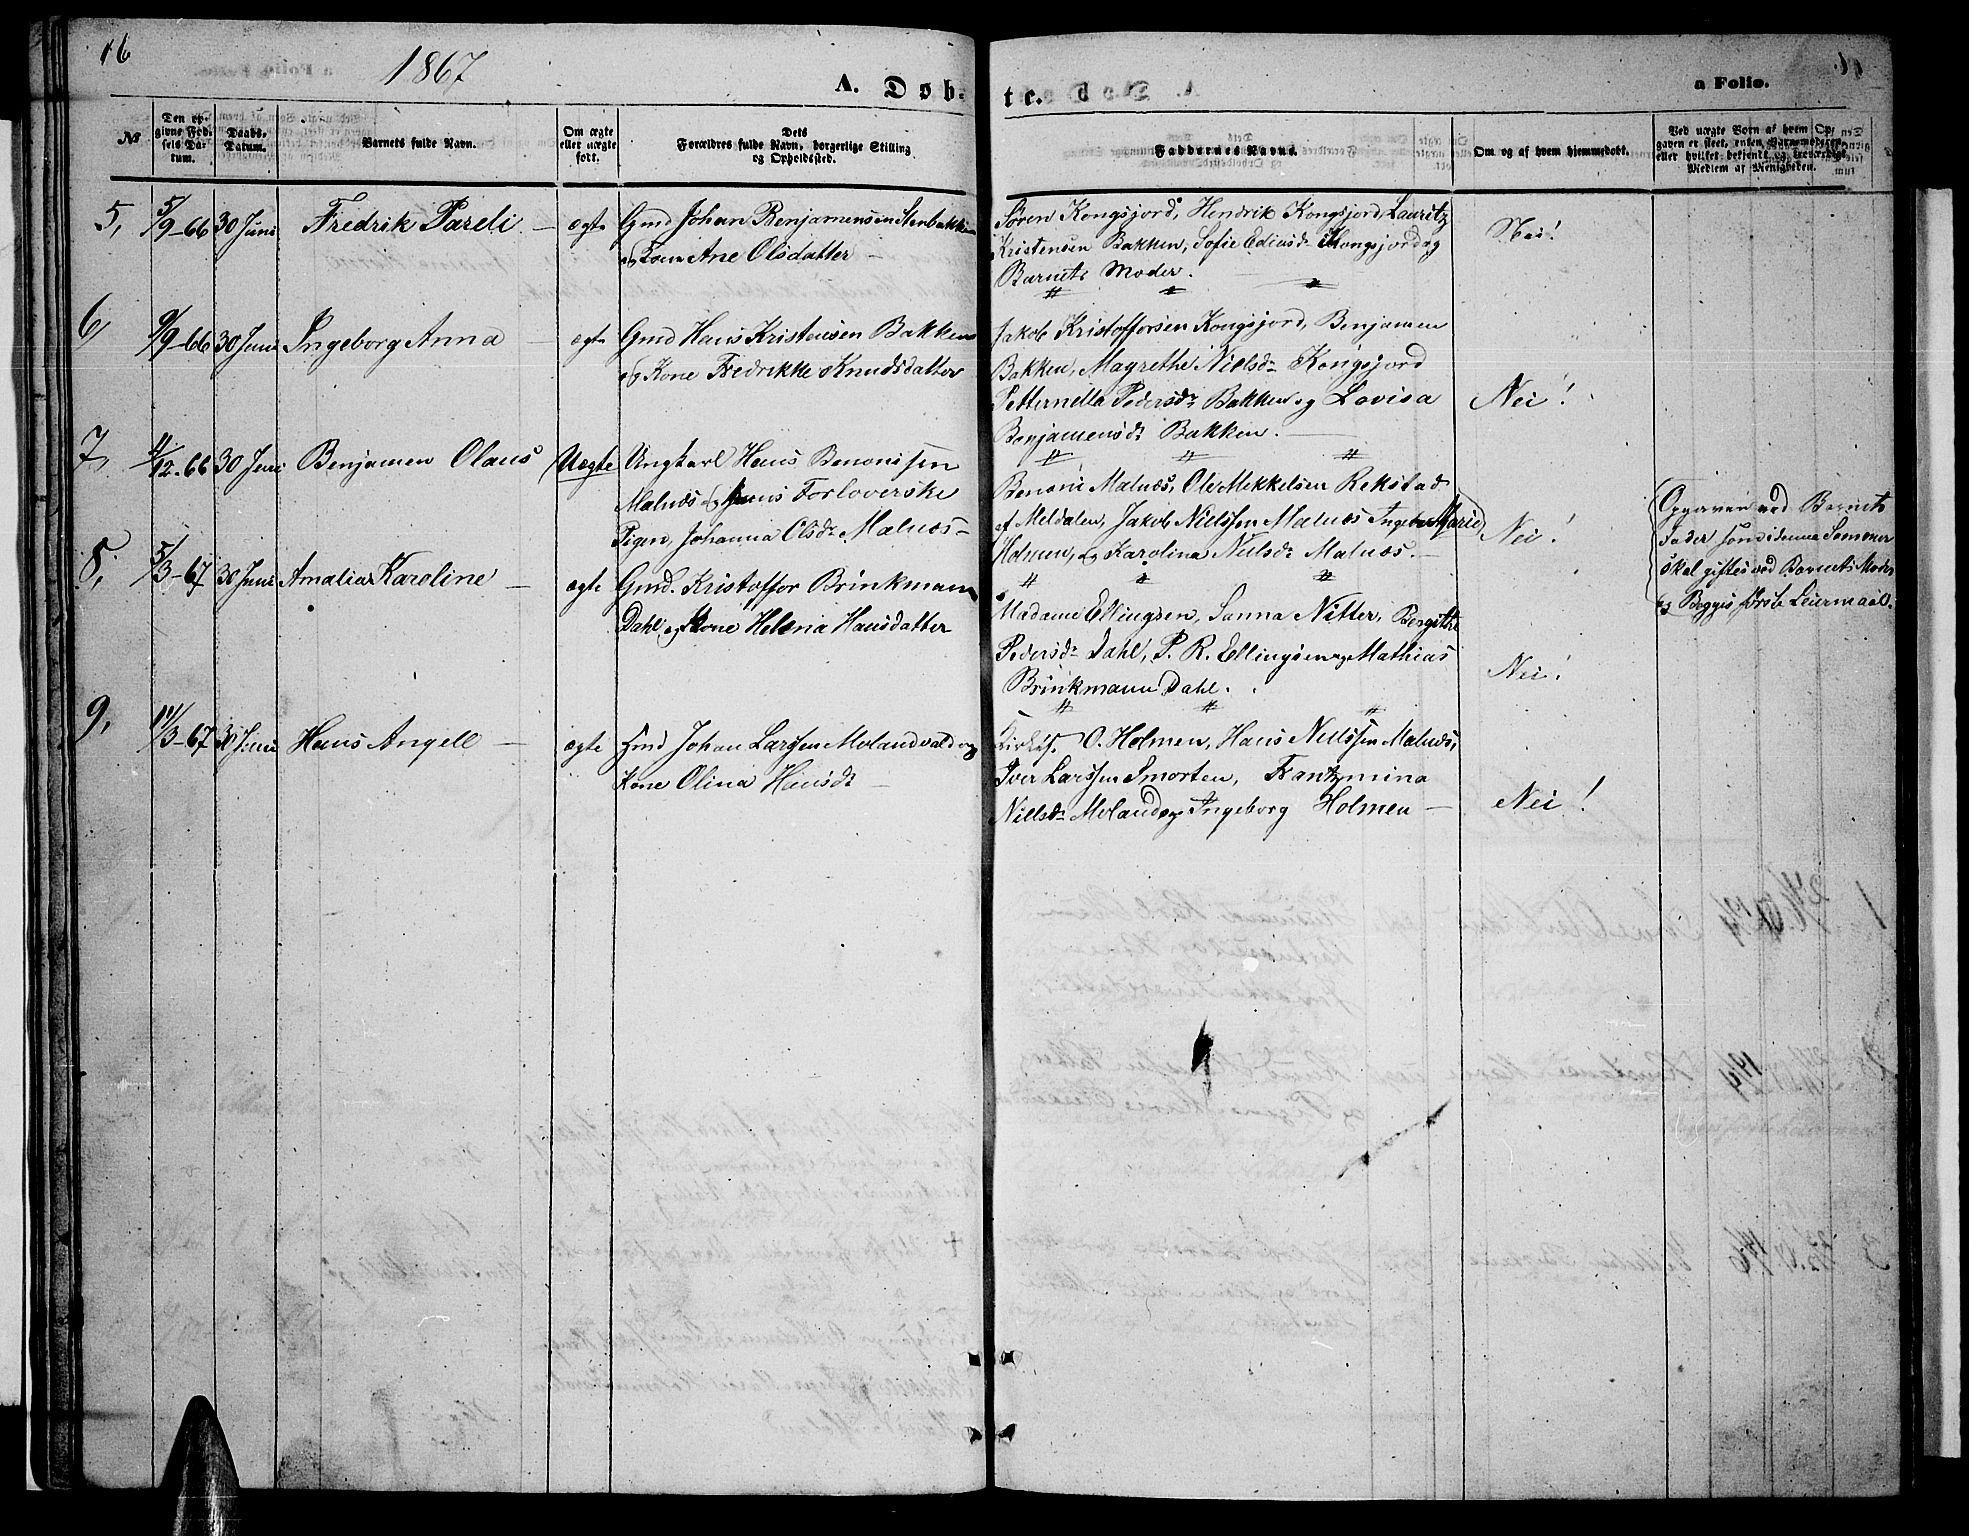 16
1867
A. Døb-
te.
a Folio.
№
Den op-
givne Fød-
sels Da-
tum.
Daabs-
Datum.
Barnets fulde Navn.
Om ægte
eller uægte
født.
Dets
Forældres fulde Navn, borgerlige Stilling
og Opholdssted.
Faddernes Navne.
Om og af hvem hjemmedøbt.
Ved uægte Børn af hvem Op-
gaven er skeet, enten Barnemoderen
eller hvilket bekjendt og troværdigt
Medlem af Menigheden.
5, 5/9-66 30 Juni Fredrik Pareli - ægte Gmd Johan Benjamensen Stenbakken
og Kone Ane Olsdatter -
Søren Kongsjord, Hendrik Kongsjord, Lauritz
Kristensen Bakken, Sofie Ediasdr Kongsjord og
Barnets Moder.
Nei!
6, 9/9-66 30 Juni Ingeborg Anna - ægte Gmd Hans Kristensen Bakken
og Kone Fredrikke Knudsdatter
Jakob Kristoffersen Kongsjord, Benjamen
Bakken, Magrethe Nielsdr Kongsjord
Petternella Pedersdr Bakken og Lovisa
Benjamensdr Bakken. -
Nei!
7, 11/12-66 30 Juni Benjamen Olaus Uægte Ungkarl Hans Benonissen
Malnæs og hans Forloverske
Pigen, Johanna Olsdr Malnæs -
Benoni Malnæs, Ole Mikkelsen Rekstad
af Meldalen, Jakob Nielssen Malnæs Ingebor Marie
Holmen, og Karolina Nielsdr Malnæs. -
Nei!
Opgiven ved Barnets
Fader som i denne Sommer
skal giftes ved Barnets Moder
og Begges første Leiermaal.
8, 5/3-67 30 Juni Amalia Karoline - ægte Gmd. Kristoffer Brinkmann
Dahl og Kone Helena Hansdatter
Madame Ellingsen, Sanna Nitter, Bergithe
Pedersdr Dahl, P. R. Ellingsen og Mathias
Brinkmann Dahl.
Nei!
9, 11/3-67 30 Juni Hans Angell - ægte Gmd Johan Larssen Molandvald og
Kone Olina Hansdr -
Kirkes. O. Holmen, Hans Nielssen Malnæs,
Iver Larssen Smorten, Frantzmina
Nielsdr Moland og Ingeborg Holmen -
Nei!